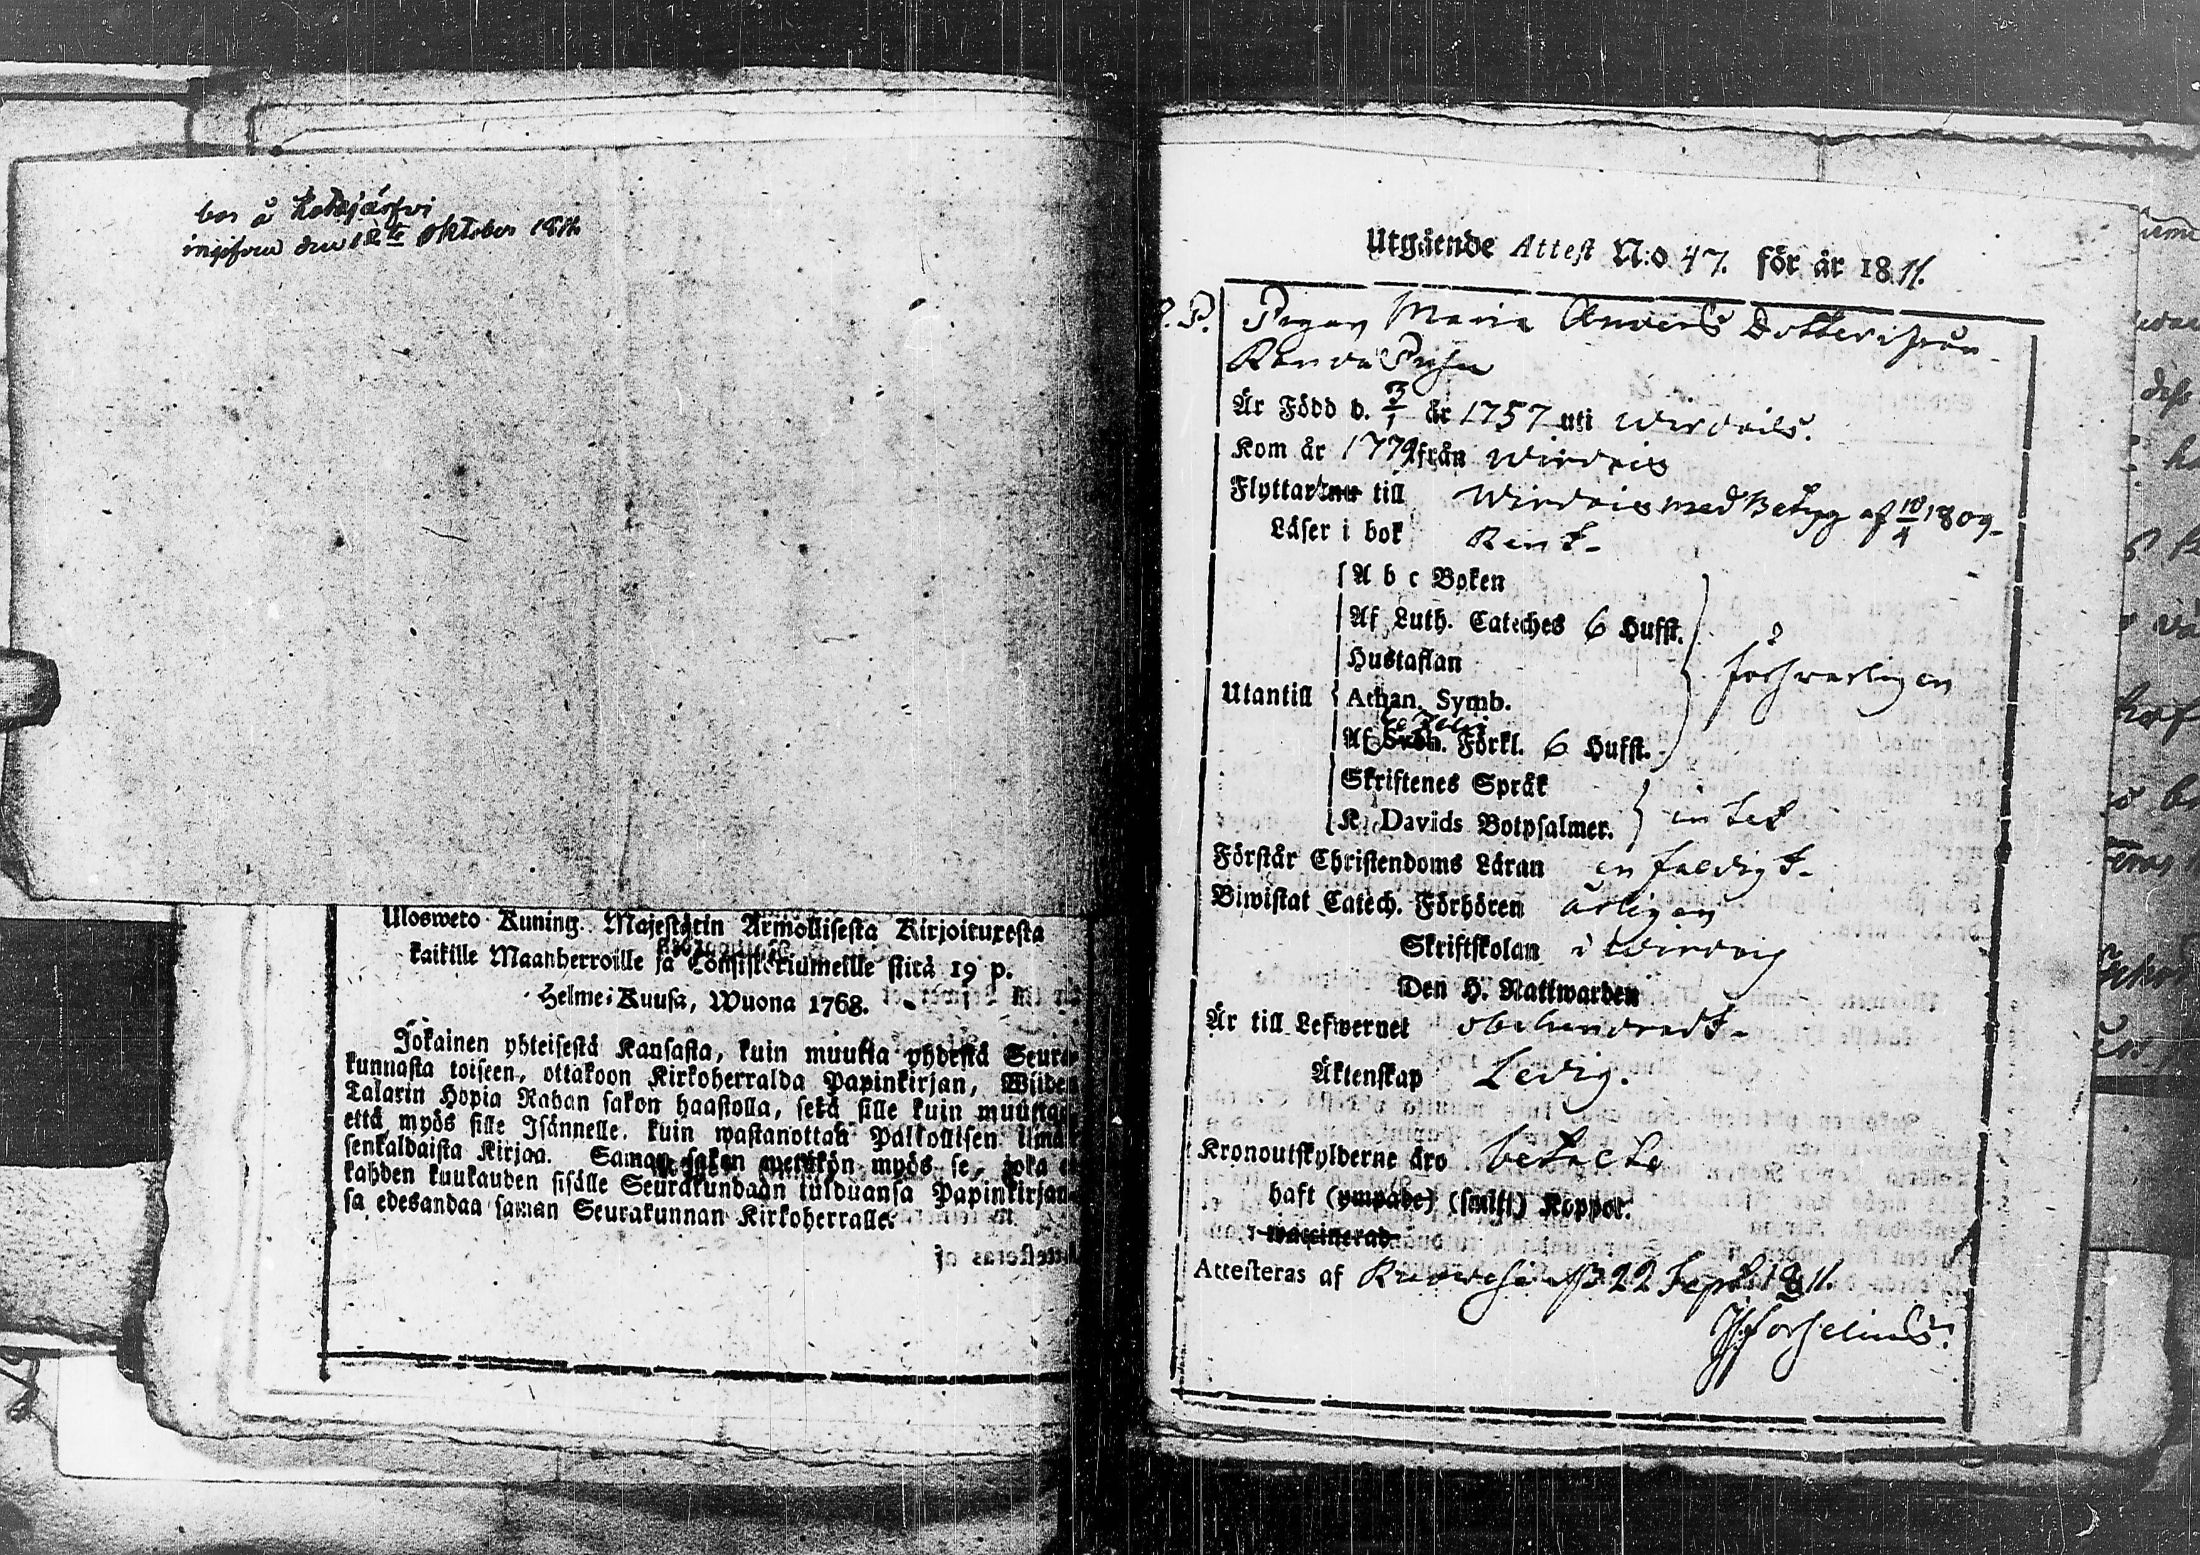 bor å Kotajärfvi
ingifven den 12te Oktober 1811
Ulosweto Kuning. Majestätin Armollisesta Kirjoituxesta
kaikille Maanherroille ja Consistoriumeille siitä 19 p.
Helme-Kuusa, Wuona 1768.
Jokainen yhteisestä Kansasta, kuin muutta yhdestä Seura-
kunnasta toiseen, ottakoon Kirkoherralda Papinkirjan, Wiiden
Talarin Hopia Rahan sakon haastolla, sekä sille kuin muutta,
että myös sille Isännelle, kuin wastanottaa Palkollisen ilman
senkaldaista Kirjaa. Saman sakon wetäkön myös se, joka ei
kahden kuukauden sisälle Seurakundaan tulduansa Papinkirjan-
sa edesandaa saman Seurakunnan Kirkoherralle.
Utgående Attest N:o 47. för år 1811.
P. P. Pigan Maria Anders Dotter ifrån
Är Född d. 3/1 år 1757 uti Wirdois.
Kom år 1779 från Wirdois
Flyttar nu till Wirdois med Betyg af 10/4 1809
Läser i bok Rent
A b c Boken
Af Luth. Cateches 6 Hufst.
Hustaflan
Utantill Athan. Symb. försvarligen
Af Sveb. Förkl. 6 Hufst.
Skriftenes Språk
K. Davids Botpsalmer. intet
Förstår Christendoms Läran enfaldigt
Biwistat Catech. Förhören årligen
Skriftskolan i Wirdois
Den H. Nattwarden
Är till Lefwernet obehindradt
Äktenskap Ledig.
Kronoutskylderne äro betalte
haft (ympade) (smitt) Koppor.
waccinerad
Attesteras af Ruovesi d. 22 Sept. 1811.
Forselius.